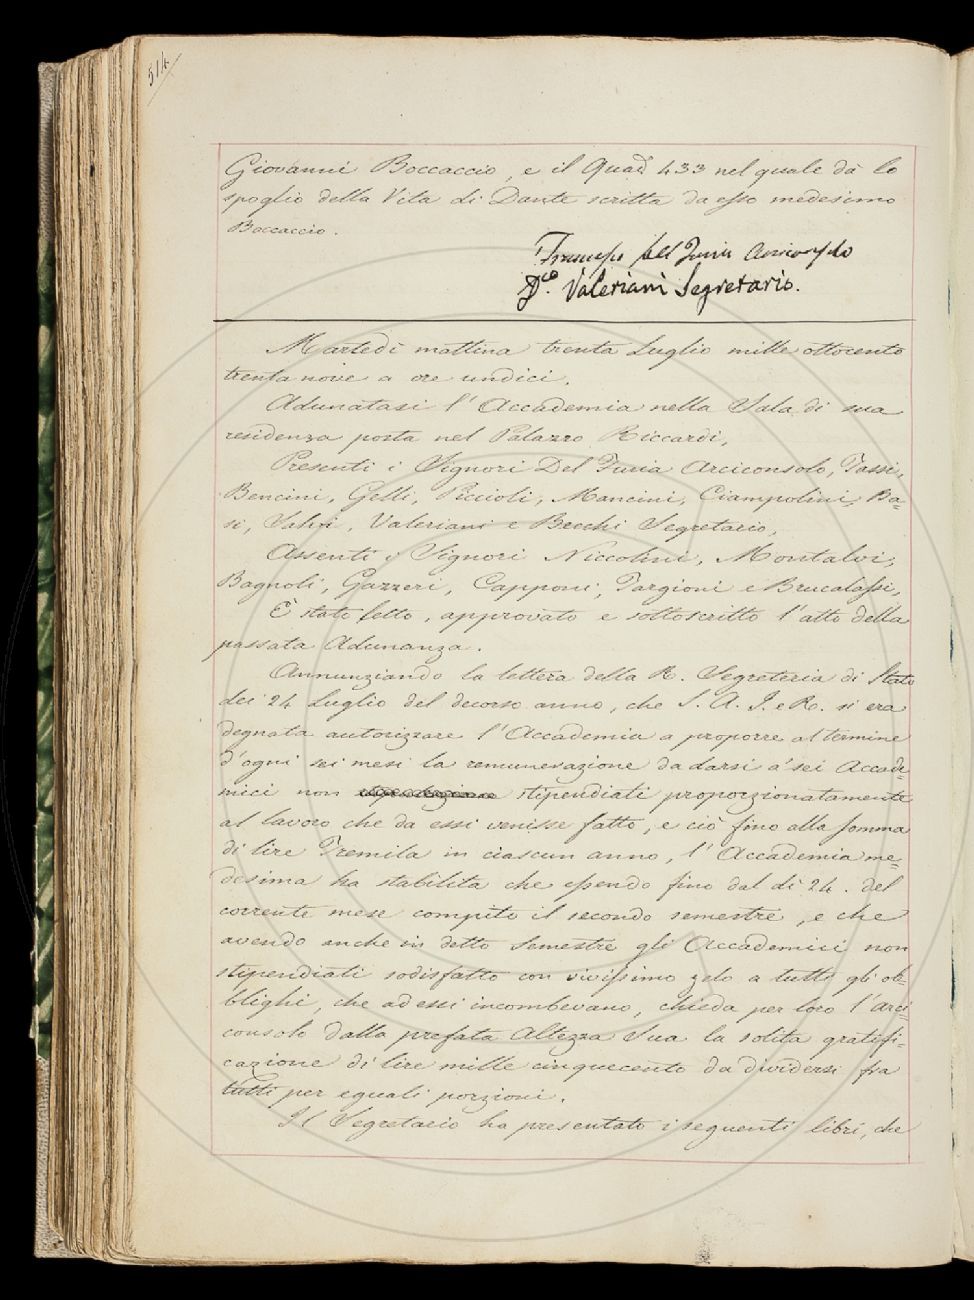 514
Giovanni Boccaccio, e il Quad. 433 nel quale dà lo
spoglio della Vita di Dante scritta da esso medesimo
Boccaccio.
Francesco del Furia Arciconsolo
D.co Valeriani Segretario.
Martedì mattina trenta Luglio mille ottocento
trenta nove a ore undici.
Adunatasi l'Accademia nella Sala di sua
residenza posta nel Palazzo Riccardi,
Presenti i Signori Del Furia Arciconsolo, Tassi,
Bencini, Gelli, Piccioli, Mancini, Ciampolini, Ba=
si, Salvi, Valeriani e Becchi Segretario,
Assenti i Signori Niccolini, Montalvi,
Bagnoli, Gazzeri, Capponi, Targioni e Brucalassi,
È stato letto, approvato e sottoscritto l'atto della
passata Adunanza.
Annunziando la lettera della R. Segreteria di Stato
dei 24 Luglio del decorso anno, che S. A. I. e R. si era
degnata autorizzare l'Accademia a proporre al termine
d'ogni sei mesi la remunerazione da darsi a' sei Accade=
mici non stipendiati proporzionatamente
al lavoro che da essi venisse fatto, e ciò fino alla somma
di lire Tremila in ciascun anno, l'Accademia me=
desima ha stabilito che essendo fino dal dì 24. del
corrente mese compito il secondo semestre, e che
avendo anche in detto Semestre gli Accademici non
stipendiati sodisfatto con vivissimo zelo a tutti gli ob=
blighi, che ad essi incombevano, chieda per loro l'Arci=
consolo dalla prefata Altezza Sua la solita gratifi=
cazione di lire mille cinquecento da dividersi fra
tutti per eguali porzioni.
Il Segretario ha presentato i seguenti libri, che